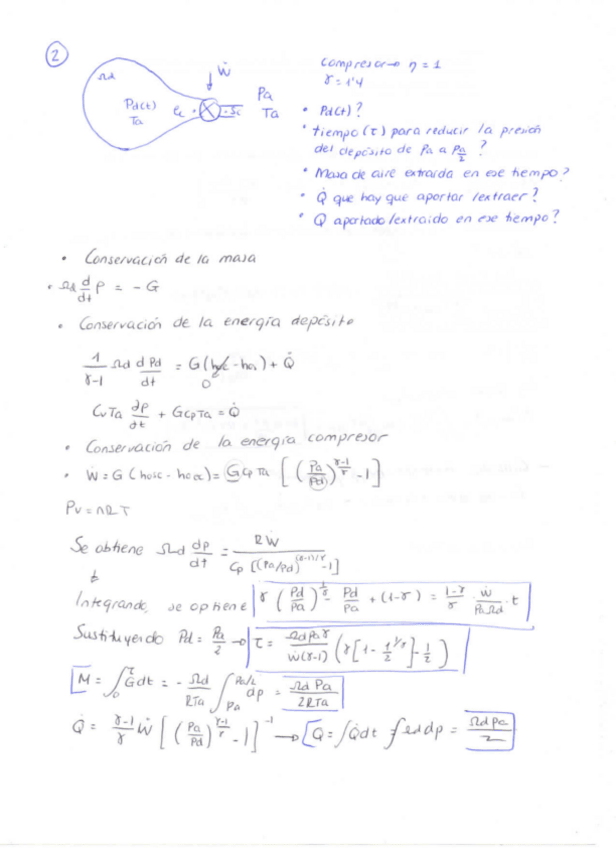 ②
Ωd
Pd(t)
Ta
ec
Ẇ
sc
Pa
Ta
Compresor → η = 1
γ = 1'4
• Pd(t)?
• tiempo (τ) para reducir la presión
del depósito de Pa a Pa/2 ?
• Masa de aire extraída en ese tiempo?
• Q̇ que hay que aportar/extraer?
• Q aportado/extraído en ese tiempo?
• Conservación de la masa
• Ωd d/dt ρ = - G
• Conservación de la energía depósito
1/(γ-1) Ωd dPd/dt = G( - hoa) + Q̇
0
CvTa ∂ρ/∂t + GCpTa = Q̇
• Conservación de la energía compresor
• Ẇ = G (hosc - hoec) = G Cp Ta [(Pa/Pd)^((γ-1)/γ) - 1]
PV = nRT
Se obtiene Ωd dp/dt = RẆ / Cp [(Pa/Pd)^((γ-1)/γ) - 1]
Integrando, se obtiene γ (Pd/Pa)^(1/γ) - Pd/Pa + (1-γ) = (1-γ)/γ · Ẇ/(Pa Ωd) · t
Sustituyendo Pd = Pa/2 → τ = Ωd Pa γ / Ẇ(γ-1) (γ[1 - 1/2^(1/γ)] - 1/2)
M = ∫₀^τ G dt = - Ωd/RTa ∫_Pa^(Pa/2) dp = Ωd Pa / 2RTa
Q̇ = (γ-1)/γ Ẇ [(Pa/Pd)^((γ-1)/γ) - 1]^-1 → Q = ∫Q̇dt = ∫Ωd dp = Ωd Pa / 2